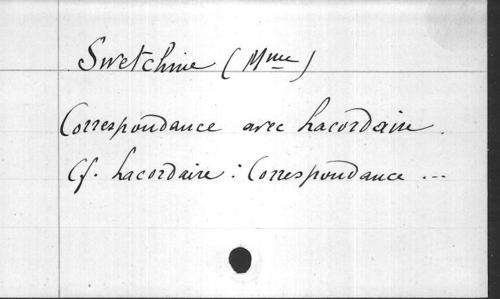 Swetchine (Mme)
Correspondance avec Lacordaire.
Cf. Lacordaire : Correspondance ...